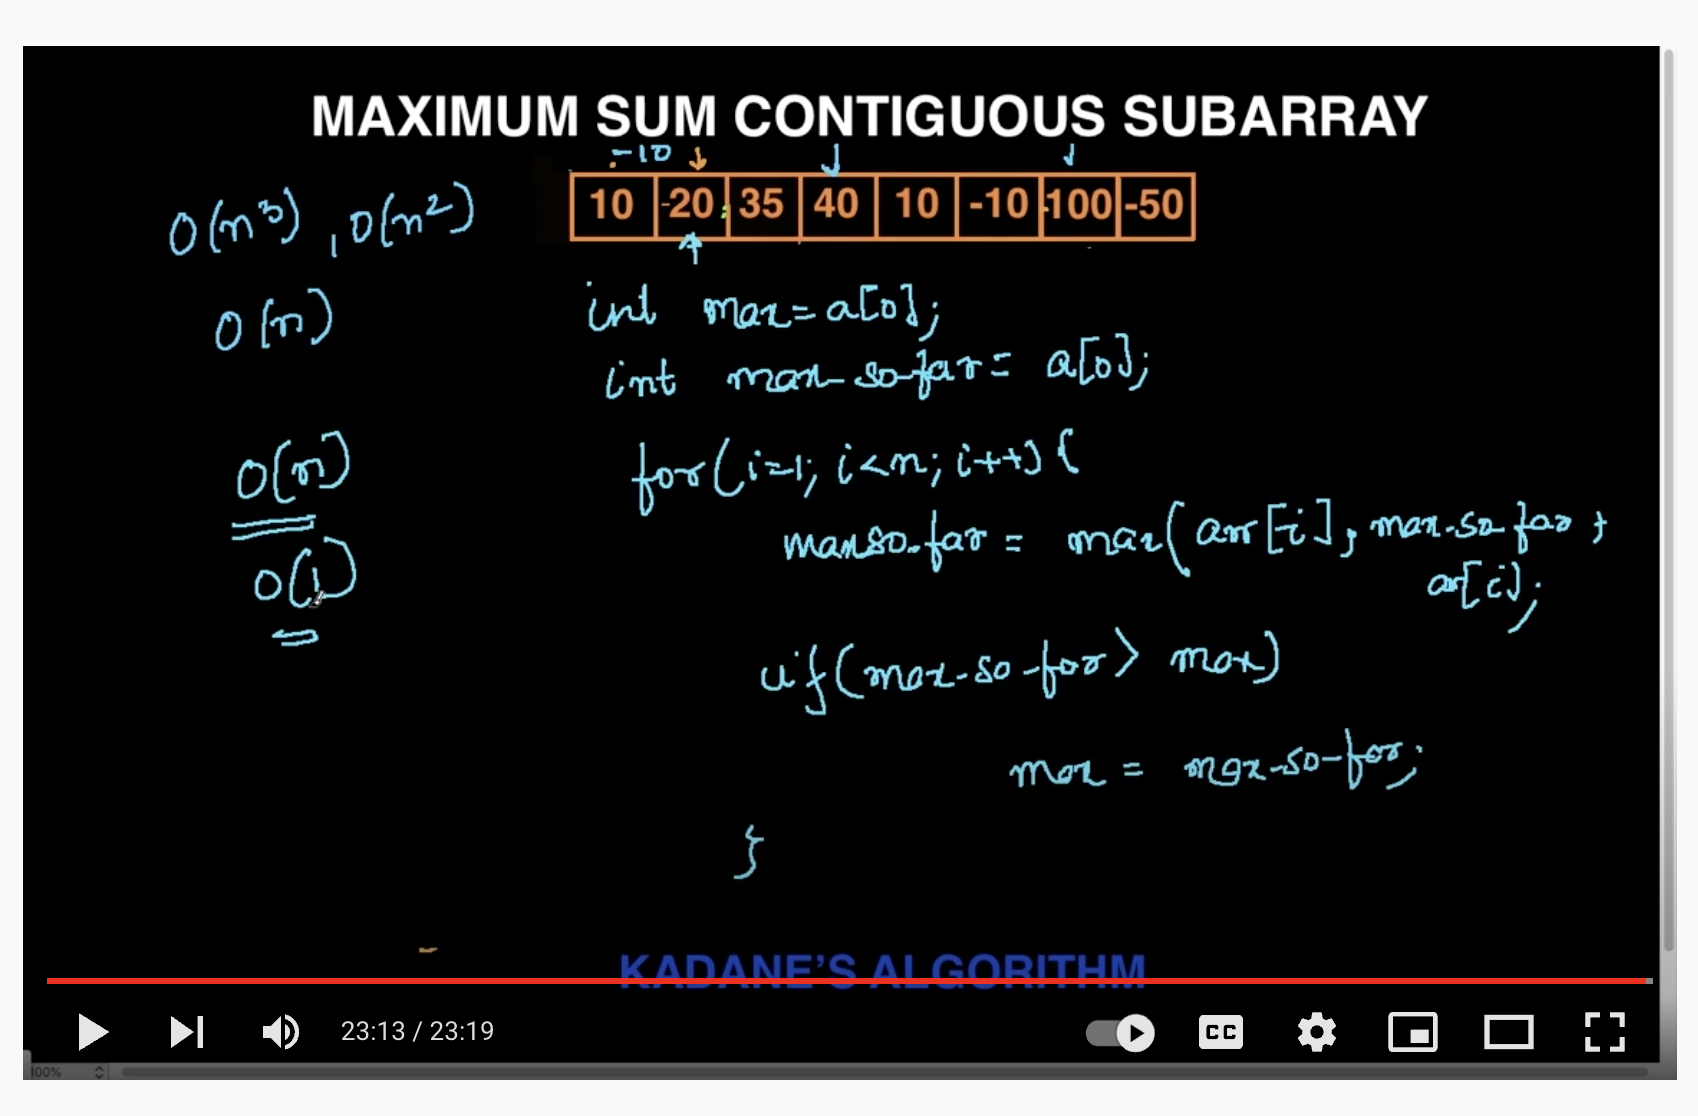 MAXIMUM SUM CONTIGUOUS SUBARRAY
-10
10 -20 35 40 10 -10 -100 -50
O(n³), O(n²)
O(n)
int max = a[0];
int max-so-far = a[0];
for(i=1; i<n; i++) {
O(n)
maxso-far = max(arr[i], max-so-far +
ar[i];
O(1)
if(max-so-far > max)
max = max-so-far;
}
KADANE'S ALGORITHM
23:13 / 23:19
CC
100%